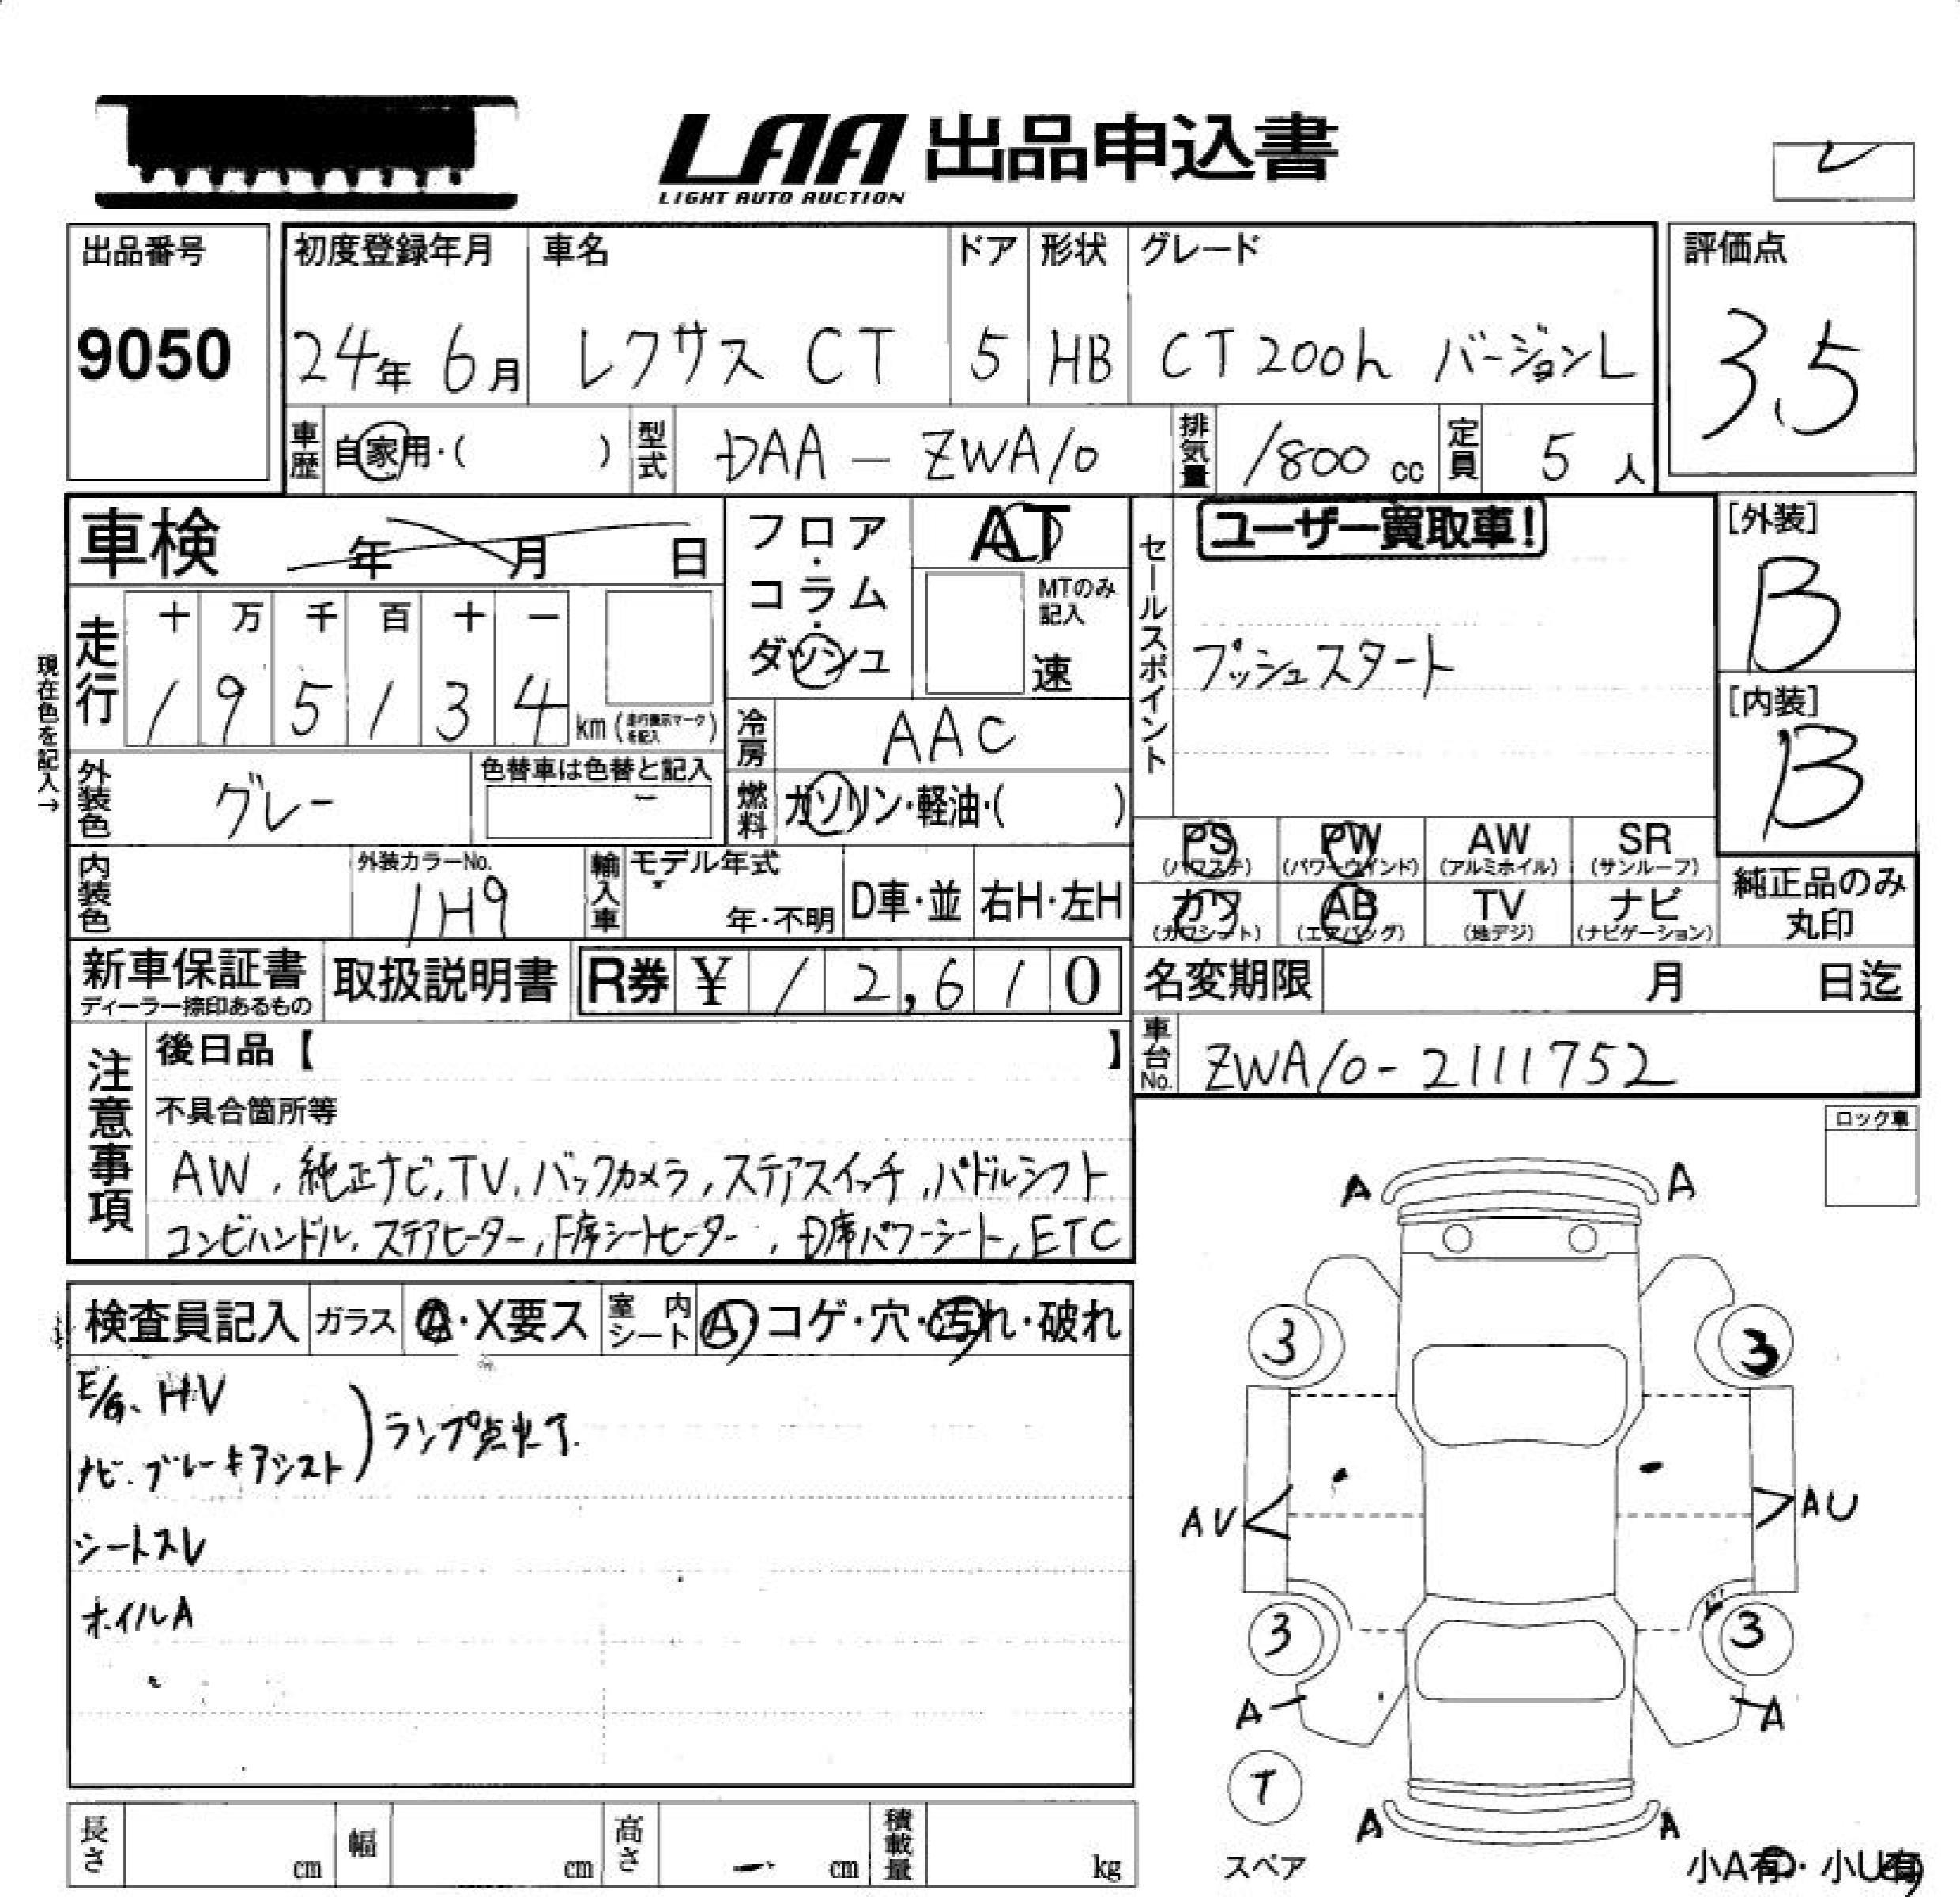 LAA 出品申込書
LIGHT AUTO AUCTION
出品番号
9050
初度登録年月 車名 ドア 形状 グレード
24年 6月 レクサス CT 5 HB CT200h バージョンL
評価点
3.5
車歴 自家用・( ) 型式 DAA-ZWA10 排気量 1800 cc 定員 5 人
車検 年 月 日
フロア・コラム・ダッシュ
AT
MTのみ記入
速
セールスポイント
ユーザー買取車!
プッシュスタート
[外装]
B
[内装]
B
現在色を記入→
走行
十 万 千 百 十 一
1 9 5 1 3 4 km (走行表示マークを記入)
冷房 AAC
外装色 グレー 色替車は色替と記入
-
燃料 ガソリン・軽油・( )
PS (パワステ) PW (パワーウインド) AW (アルミホイル) SR (サンルーフ)
カワ (カワシート) AB (エアバッグ) TV (地デジ) ナビ (ナビゲーション)
純正品のみ丸印
内装色 外装カラーNo. 1H9 輸入車 モデル年式 年・不明 D車・並 右H・左H
新車保証書 ディーラー捺印あるもの 取扱説明書 R券 ¥ 12,610
名変期限 月 日迄
車台No. ZWA10-2111752
注意事項
後日品【 】
不具合箇所等
AW, 純正ナビ, TV, バックカメラ, ステアスイッチ, パドルシフト
コンビハンドル, ステアヒーター, F席シートヒーター, D席パワーシート, ETC
ロック車
検査員記入 ガラス A・X要ス 室内シート A・コゲ・穴・汚れ・破れ
E/G、HV
ナビ・ブレーキアシスト) ランプ点灯
シートスレ
ホイルA
A A
3 3
AU AU
3 3
A A
T
スペア
A A
小A有・小U有
長さ cm 幅 cm 高さ cm 積載量 kg